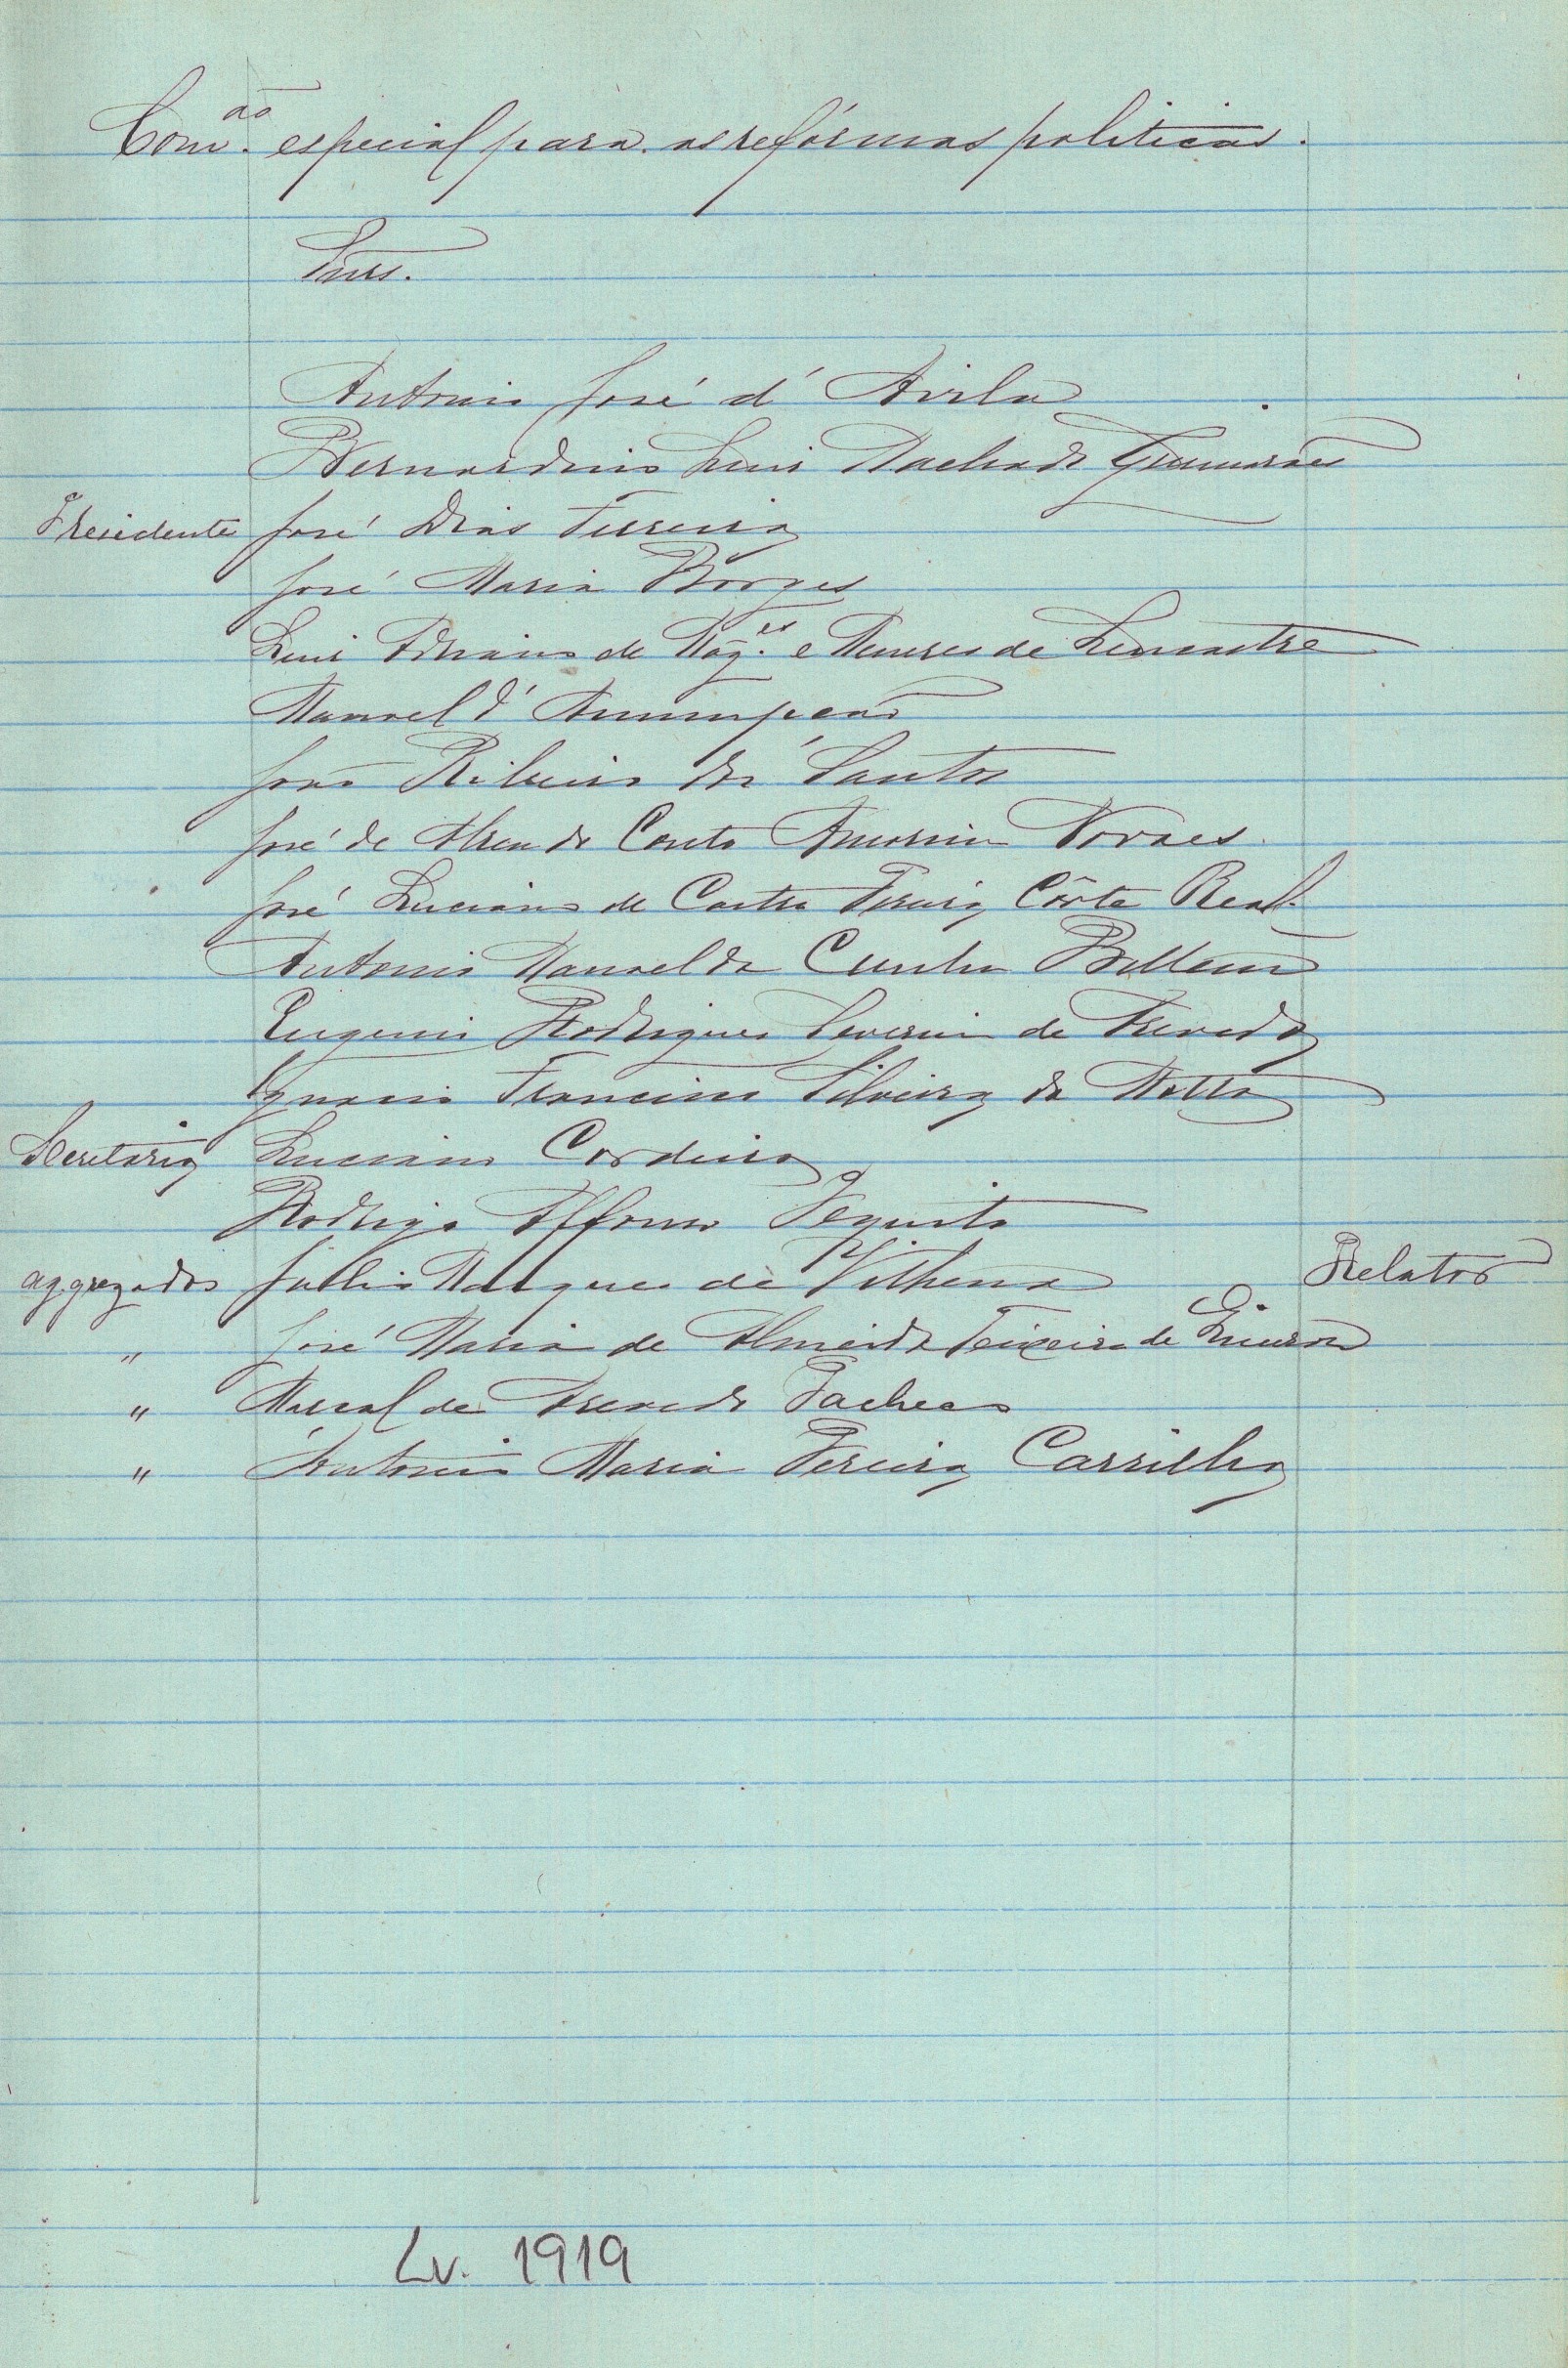 Com.ão especial para as refórmas politicas.
Snrs.
Antonio José d'Avila
Bernardino Luis Machado Guimarães
Presidente José Dias Ferreira
José Maria Borges
Luis Adriano de Mag.es e Meneses de Lencastre
Manoel d'Assumpção
João Ribeiro dos Santos
José de Abreu do Couto Amorim Novaes
José Luciano de Castro Pereira Côrte Real
Antonio Manoel da Cunha Bellem
Eugenio Rodrigues Severim de Azevedo
Ignacio Francisco Silveira da Motta
Secretario Luciano Cordeiro
Rodrigo Affonso Pequito
aggregados Julio Marques de Vilhena Relator
" José Maria de Almeida Teixeira de Queiroz
" Marçal de Azevedo Pacheco
" Antonio Maria Pereira Carrilho
Lv. 1919